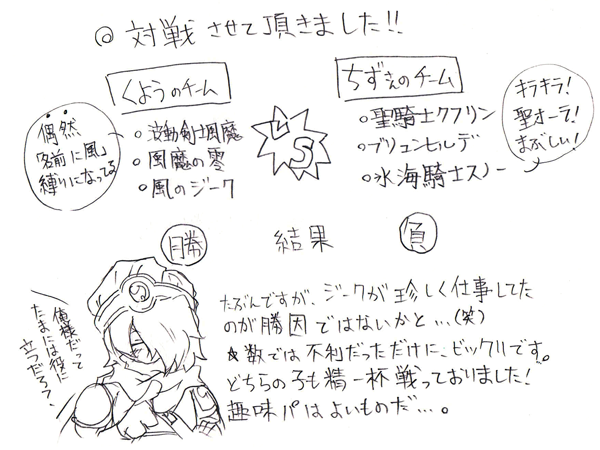 ◎ 対戦させて頂きました!!
くようのチーム
ちずえのチーム
偶然
「名前に風」
縛りになってる
○波動剣士風魔
○風魔の零
○風のジーク
VS
○聖騎士クフリン
○ブリュンヒルデ
○氷海騎士スノー
キラキラ!
聖オーラ!
まぶしい!
勝 結果 負
たぶんですが、ジークが珍しく仕事してた
のが勝因ではないかと…(笑)
★数では不利だっただけに、ビックリです。
どちらの子も精一杯戦っておりました!
趣味パはよいものだ…。
俺様だって
たまには役に
立つだろ?、